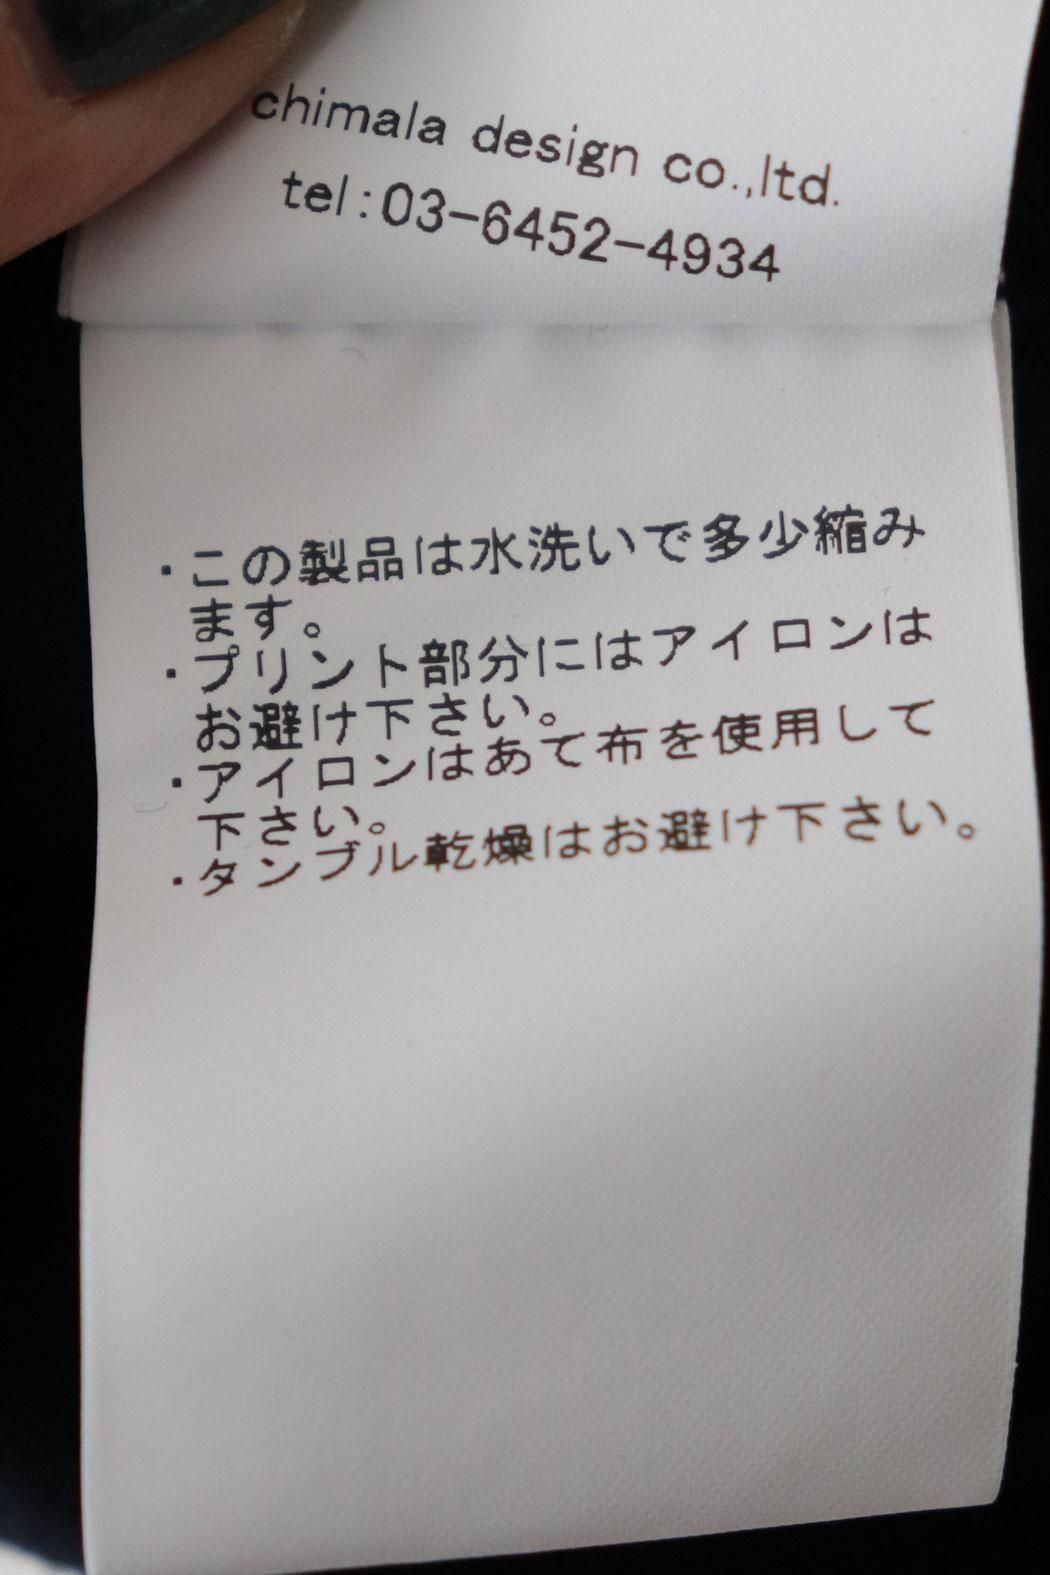 chimala design co.,ltd.
tel:03-6452-4934
・この製品は水洗いで多少縮み
ます。
・プリント部分にはアイロンは
お避け下さい。
・アイロンはあて布を使用して
下さい。
・タンブル乾燥はお避け下さい。